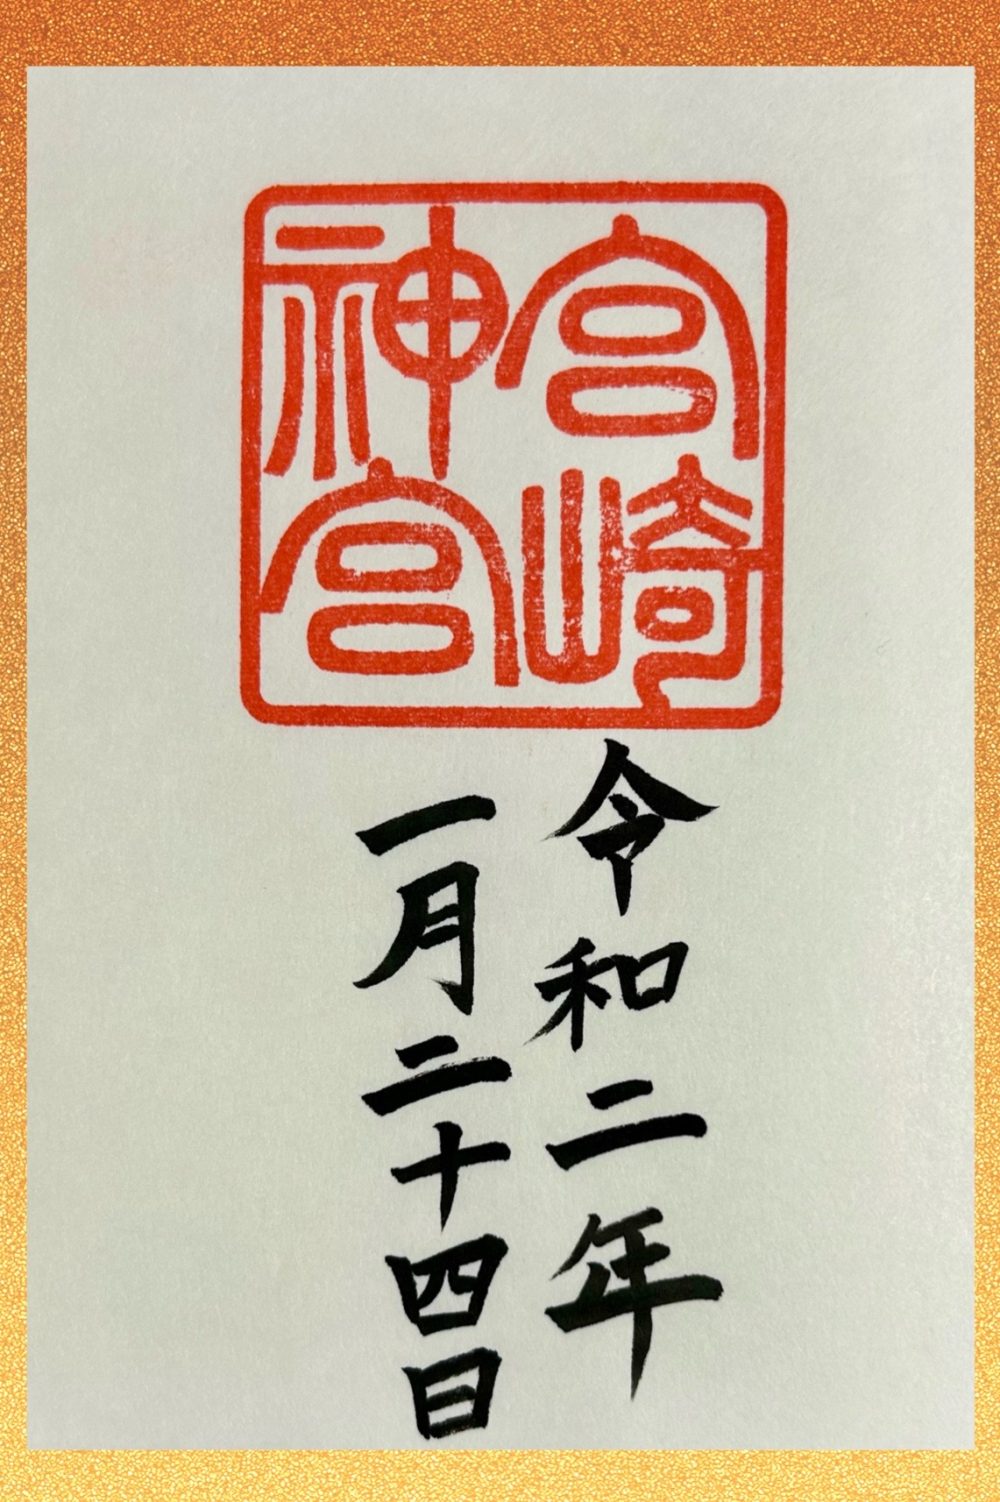 宮崎
神宮
令和二年
一月二十四日